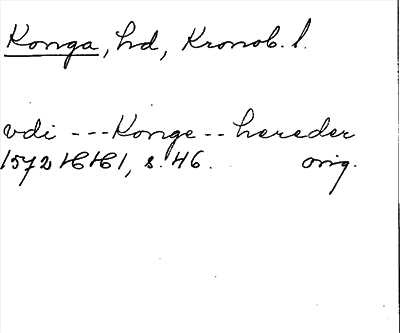 Konga, hd, Kronob. l.
vdi --- Konge -- hereder
1572 16/6 1, s. 46. orig.